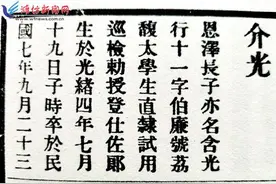 介光
恩澤長子亦名含光
行十一字伯廉號荔
馥太學生直隸試用
巡檢勅授登仕佐郞
生於光緒四年七月
十九日子時卒於民
國七年九月二十三